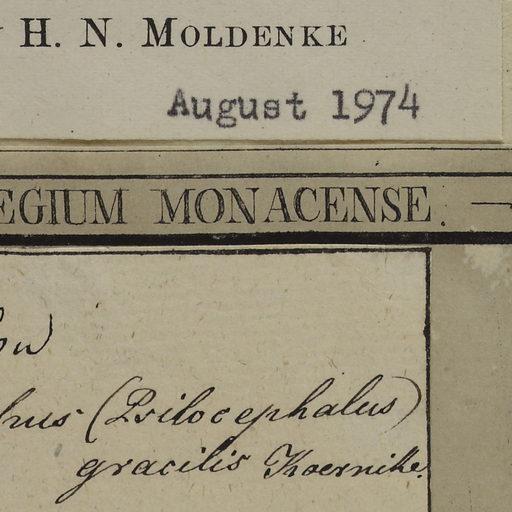 H. N. MOLDENKE
August 1974
EGIUM MONACENSE.
hus (Psilocephalus)
gracilis Koernike.